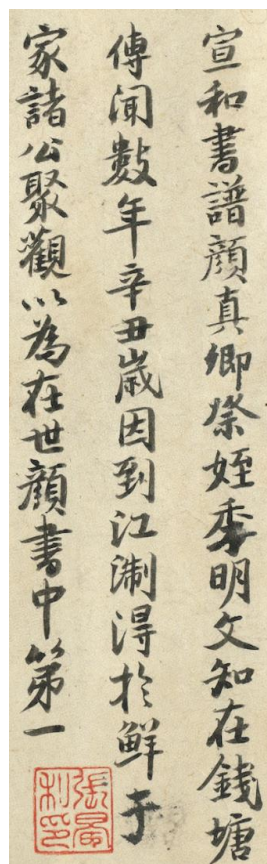 宣和書譜顔真卿祭姪季明文知在錢塘
傳聞數年辛丑歲因到江淛得於鮮于
家諸公聚觀以為在世顔書中第一
張晏
私印